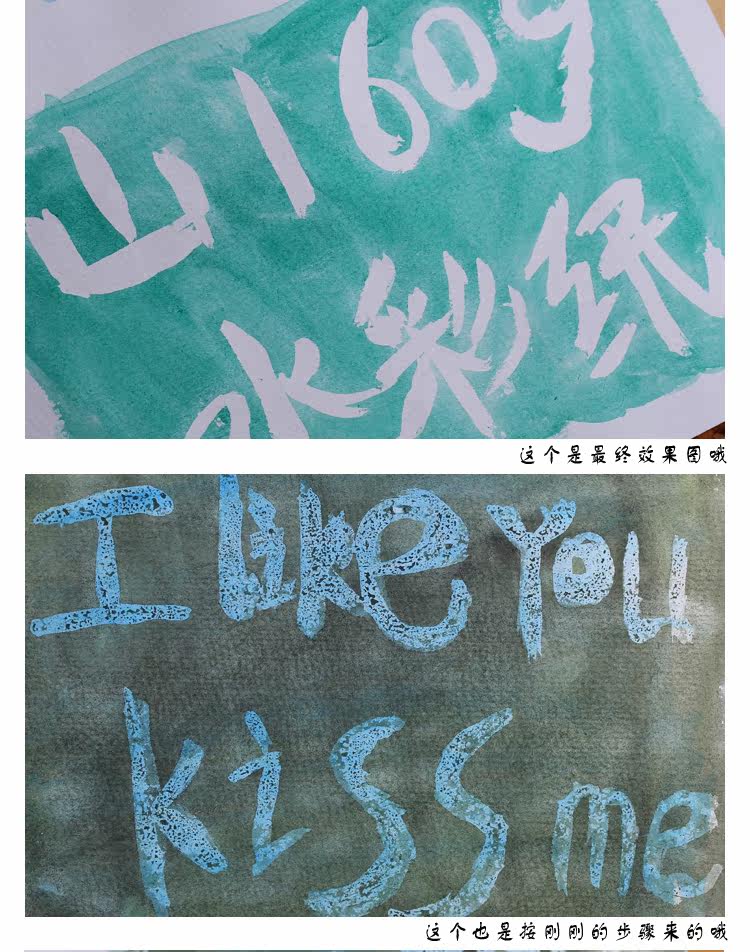 山160g
水彩纸
这个是最终效果图哦
I like You
kiss me
这个也是按刚刚的步骤来的哦